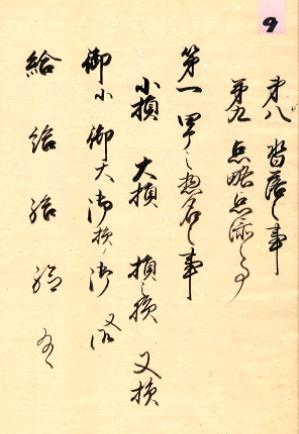 9
第八 落之事
第九 点略点添之事
第一 之惣名之事
小損 大損 損之損 又損
御小 御大 御損ノ御 又
給 給 給 給